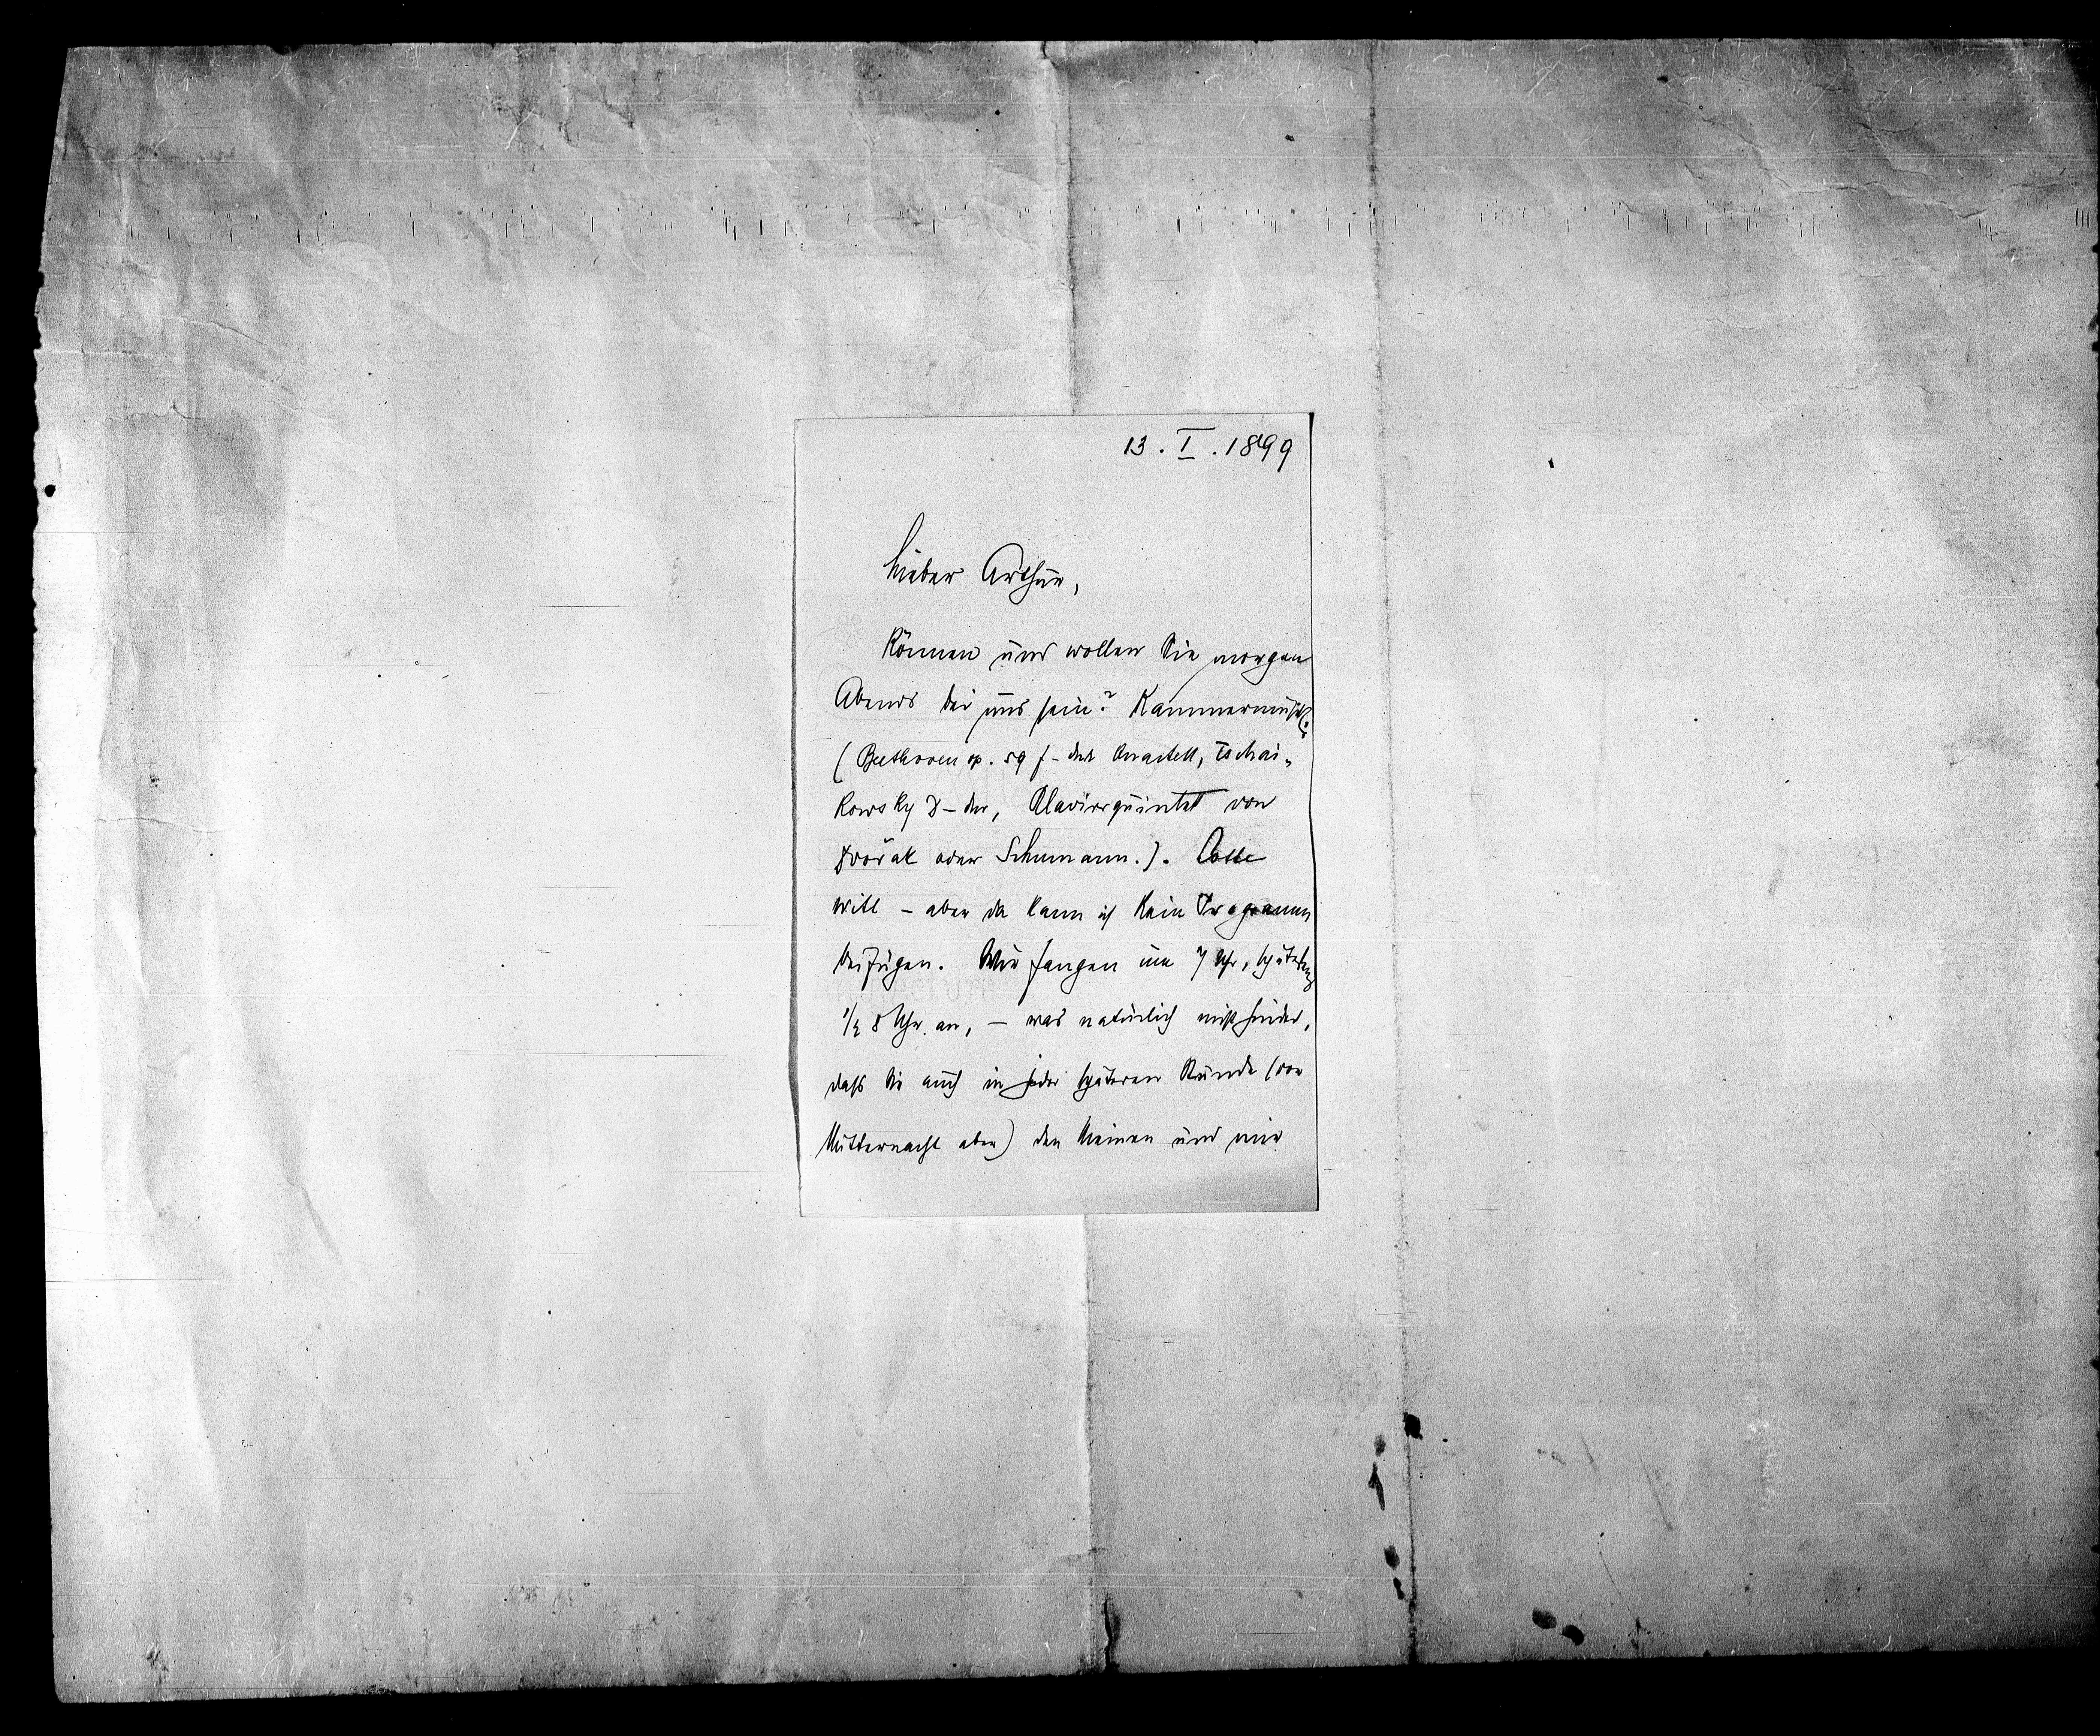 13. I. 1899
Lieber Arthur,
Können und wollen Sie morgen
Abends bei uns sein? Kammermusik
(Beethoven op. 59 f-dur Quartett, Tschai-
kowsky D-dur, Clavierquintett von
Dvořak oder Schumann.).
will – aber da kann ich kein Programm
beifügen. Wir fangen um 7 Uhr, spätestens
1/2 8 Uhr an, – was natürlich nicht hindert,
dass Sie auch in jeder späteren Stunde (vor
Mitternacht aber) den Meinen und mir